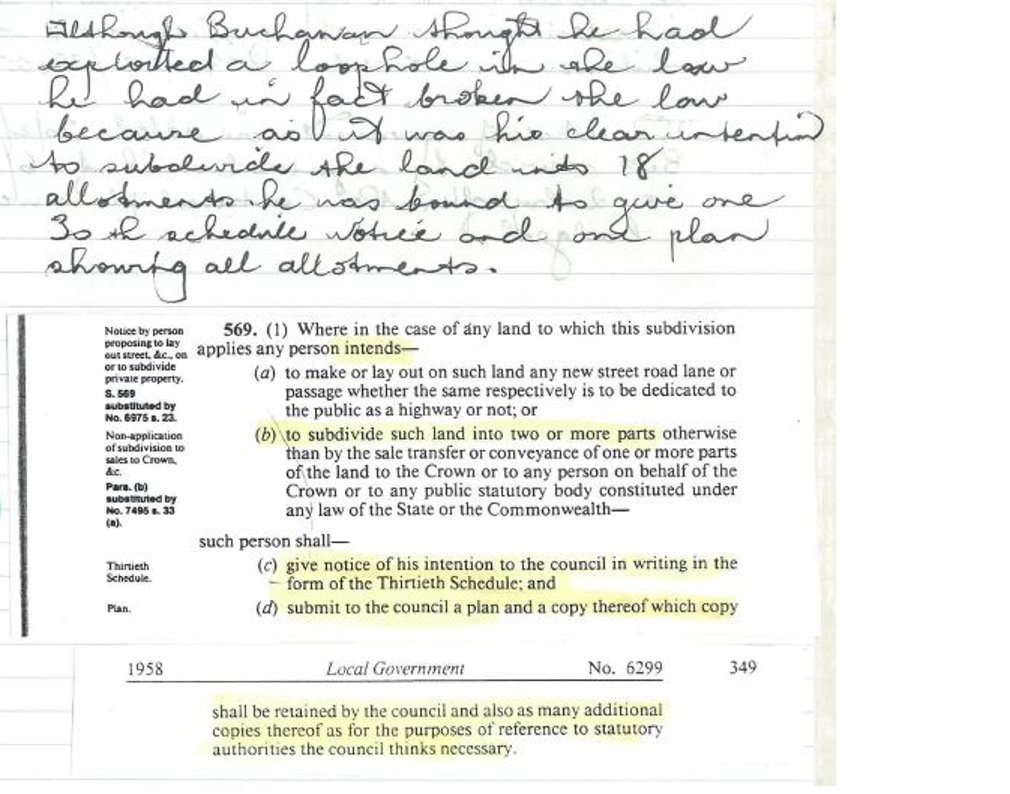 Although Buchanan thought he had
exploited a loophole in the law
he had in fact broken the law
because as it was his clear intention
to subdivide the land into 18
allotments he was bound to give one
30 th schedule Notice and one plan
showing all allotments.
Notice by person
proposing to lay
out street, &c., on
or to subdivide
private property.
S. 569
substituted by
No. 6975 s. 23.
Non-application
of subdivision to
sales to Crown,
&c.
Para. (b)
substituted by
No. 7495 s. 33
(a).
569. (1) Where in the case of any land to which this subdivision
applies any person intends—
(a) to make or lay out on such land any new street road lane or
passage whether the same respectively is to be dedicated to
the public as a highway or not; or
(b) to subdivide such land into two or more parts otherwise
than by the sale transfer or conveyance of one or more parts
of the land to the Crown or to any person on behalf of the
Crown or to any public statutory body constituted under
any law of the State or the Commonwealth—
such person shall—
Thirtieth
Schedule.
(c) give notice of his intention to the council in writing in the
form of the Thirtieth Schedule; and
Plan.
(d) submit to the council a plan and a copy thereof which copy
1958 Local Government No. 6299 349
shall be retained by the council and also as many additional
copies thereof as for the purposes of reference to statutory
authorities the council thinks necessary.